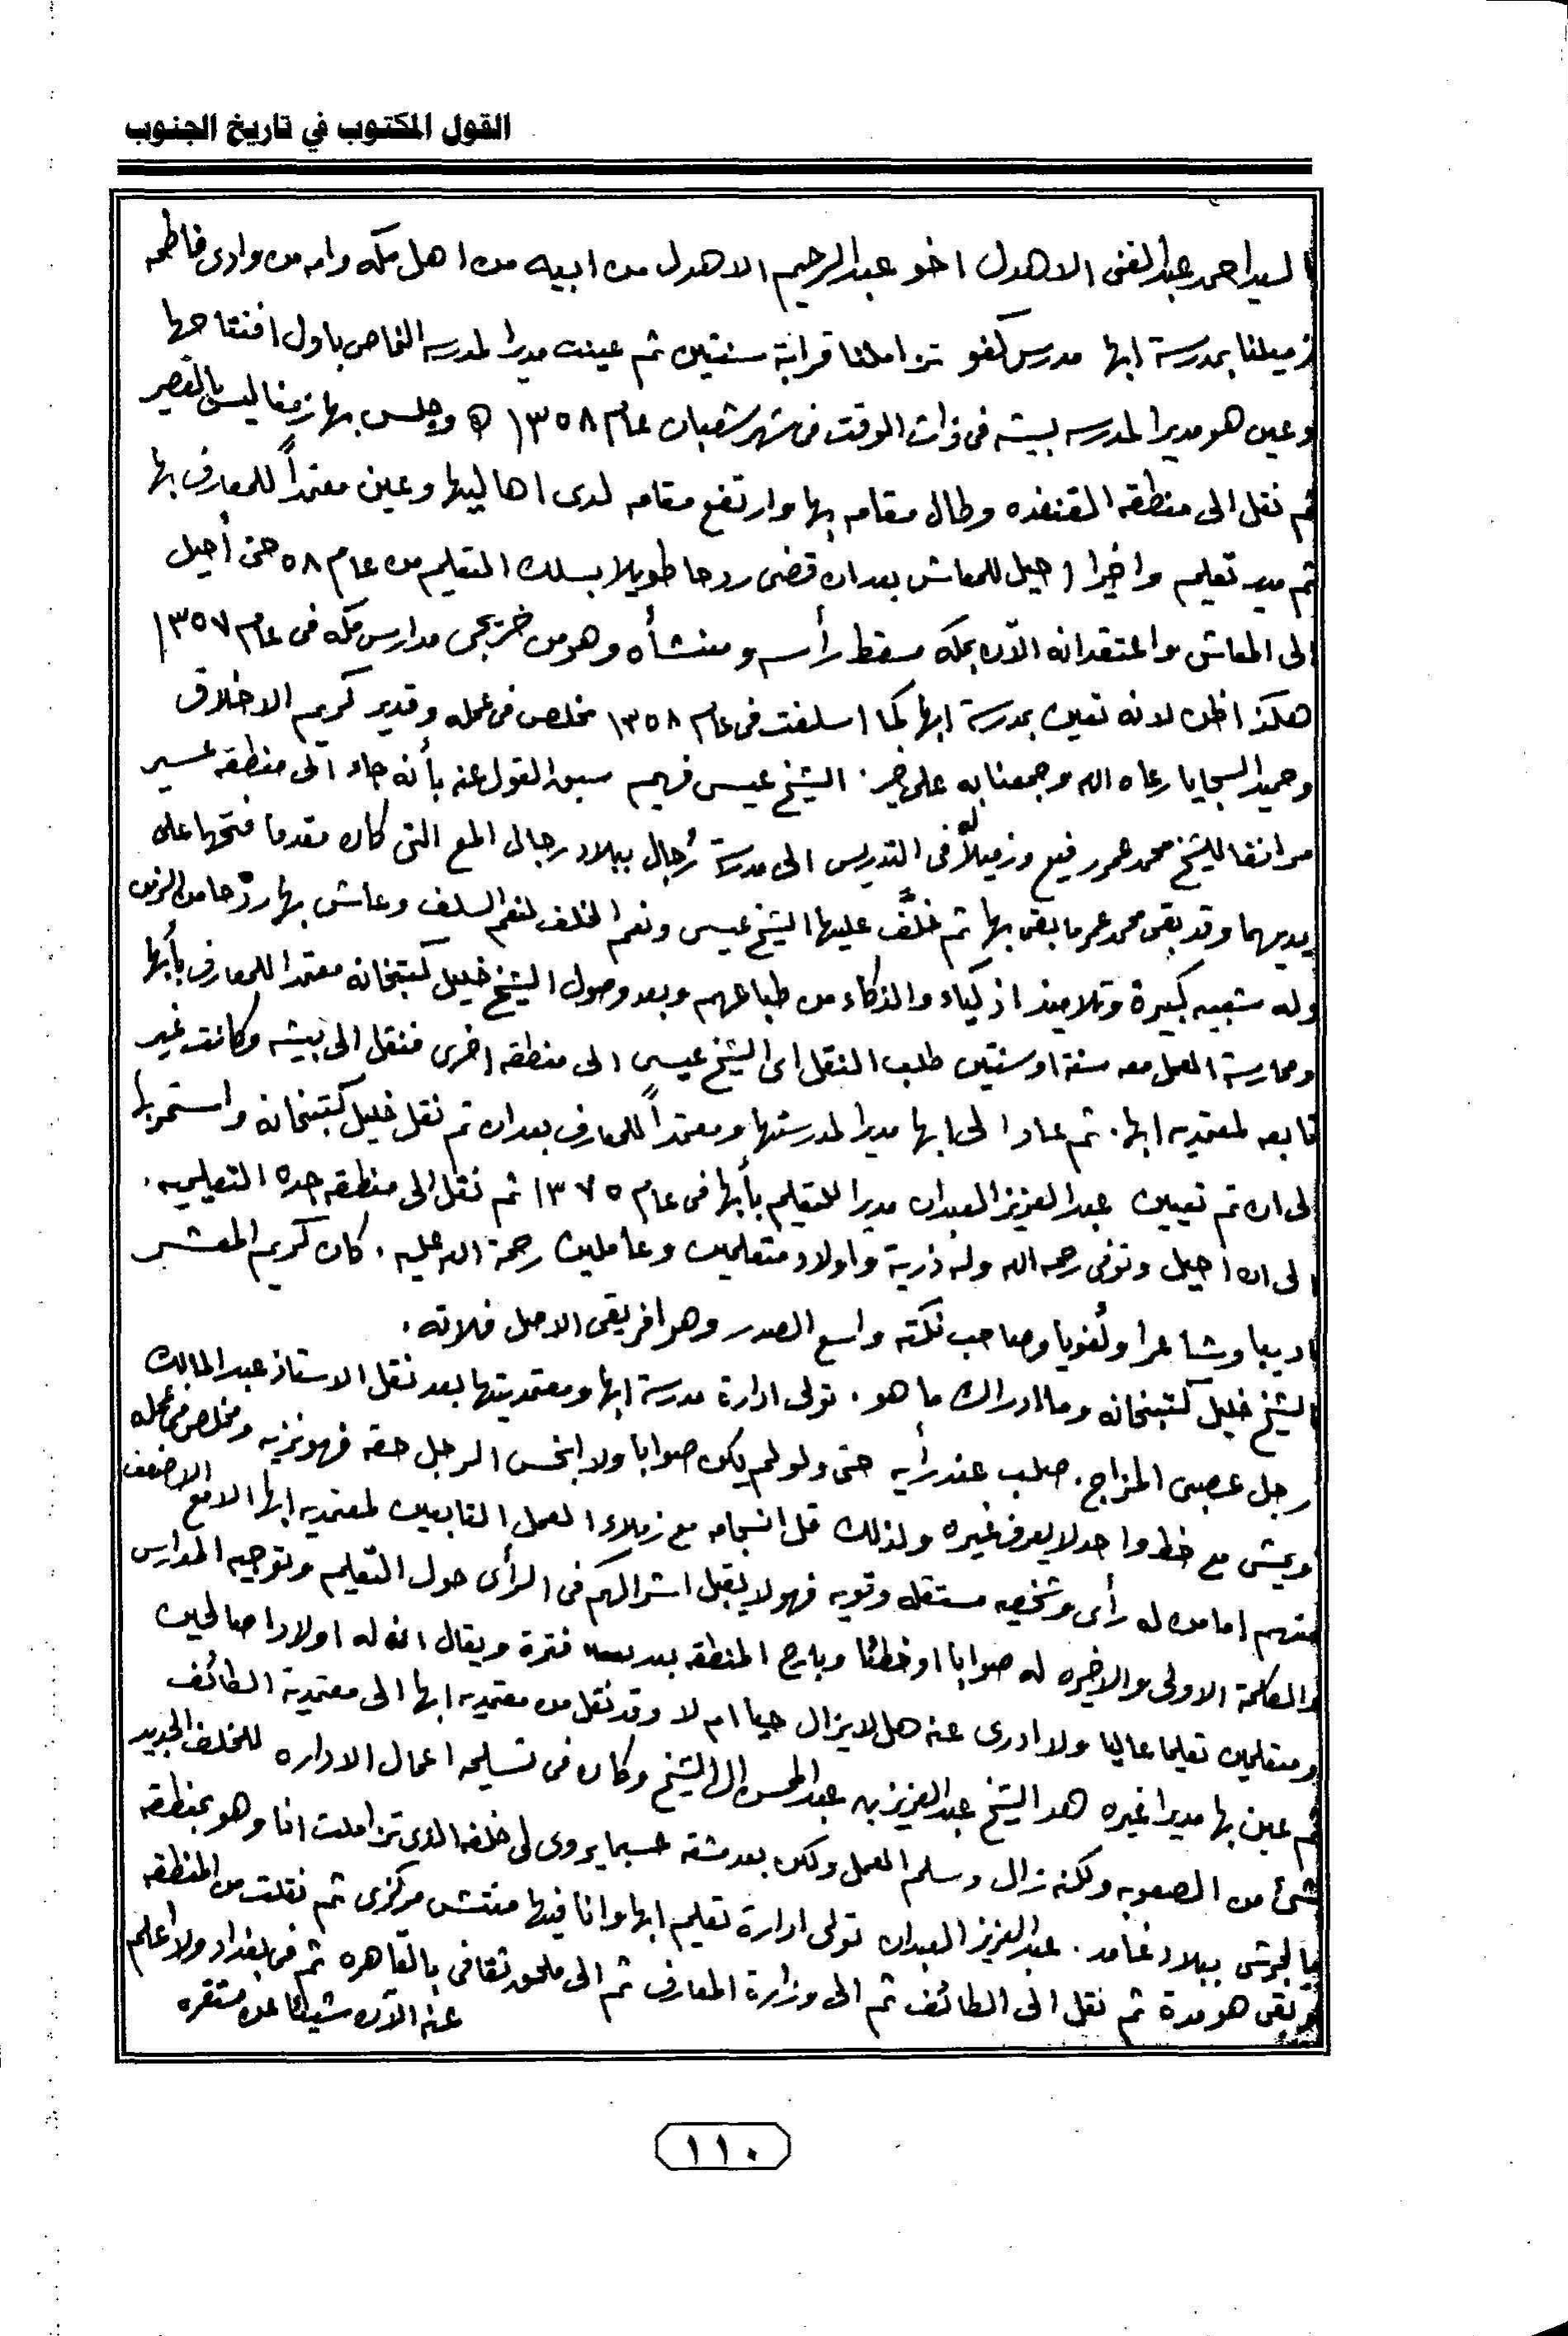 القول المكتوب في تاريخ الجنوب
السيد احمد عبدالغنى الاهدل اخو عبدالرحيم الاهدل من ابيه من اهل مكه وامه من وادى فاطمه
زميلنا بمدرسة ابها مدرس كفو تزاملنا قرابة سنتين ثم عينت مديرا لمدرسه النماص باول افتتاحها
وعين هو مديرا لمدرسه بيشه فى ذات الوقت فى شهر شعبان عام ١٣٥٨ ه وجلس بها زمنا ليس بالقصير
ثم نقل الى منطقه القنفذه وطال مقامه بها وارتفع مقامه لدى اهاليها وعين معتمداً للمعارف بها
ثم مدير تعليم واخيرا احيل للمعاش بعد ان قضى ردحا طويلا بسلك التعليم من عام ٥٨ حتى أحيل
الى المعاش واعتقد انه الآن بمكه مسقط رأسه ومنشأه وهو من خريجى مدارس مكه فى عام ١٣٥٧
هكذا اظن لانه تعين بمدرسة ابها كما اسلفت فى عام ١٣٥٨ مخلص فى عمله وقدير كريم الاخلاق
وحميد السجايا رعاه الله وجمعنا به على خير . الشيخ عيسى فهيم سبق القول عنه بأنه جاء الى منطقه عسير
مرافقا للشيخ محمد عمر رفيع وزميلاً له فى التدريس الى مدرسة رُجال ببلاد رجال المع التى كان مقدما فتحها على
يديهما وقد بقى محمد عمر ما بقى بها ثم خلّف عليها الشيخ عيسى ونعم الخلف لنعم السلف وعاش بها ردحا من الزمن
وله شعبيه كبيرة وتلاميذ اذكياء والذكاء من طباعهم وبعد وصول الشيخ خليل كتبخانه معتمدا للمعارف بأبها
وممارسة العمل معه سنة او سنتين طلب النقل اى الشيخ عيسى الى منطقه اخرى فنقل الى بيشه وكانت غير
تابعه لمعتمديه ابها . ثم عاد الى ابها مديرا لمدرستها ومعتمداً للمعارف بعد ان تم نقل خليل كتبخانه واستمر بها
الى ان تم تعيين عبدالعزيز العبدان مديرا للتعليم بأبها فى عام ١٣٧٥ ثم نقل الى منطقه جده التعليميه .
الى ان احيل وتوفى رحمه الله وله ذرية واولاد متعلمين وعاملين رحمة الله عليه . كان كريم المعشر
اديبا وشاعرا ولُغويا وصاحب نكته واسع الصدر وهو افريقى الاصل فلاته .
الشيخ خليل كتبخانه وما ادراك ما هو . تولى ادارة مدرسة ابها ومعتمديتها بعد نقل الاستاذ عبدالمالك
رجل عصبى المزاج . صلب عند رأيه حتى ولو لم يكن صوابا ولا ابخس الرجل حقه فهو نزيه ومخلص فى عمله
ويمشى مع خط واحد لا يعرف غيره ولذلك قل انسجامه مع زملاء العمل التابعين لمعتمديه ابها الا مع الاضعف
منهم اما من له رأى وشخصيه مستقله وقويه فهو لا يقبل اشراكهم فى الرأى حول التعليم وتوجيه المدارس
والكلمة الاولى والاخيره له صوابا او خطئا وبارح المنطقه بعد فترة ويقال انه له اولادا صالحين
ومتعلمين تعليما عاليا ولا ادرى عنه هل لا يزال حيا ام لا وقد نقل من معتمديه ابها الى معتمدية الطائف
ثم عين بها مديرا غيره هو الشيخ عبدالعزيز بن عبدالمحسن ال الشيخ وكان فى تسليمه اعمال الاداره للخلف الجديد
شئ من الصعوبه ولكنه زال وسلم العمل ولكن بعد مشقه حسبما يروى لى خلفه الذى تزاملت انا وهو بمنطقه
بالجرشى ببلاد غامد . عبدالعزيز العبدان تولى ادارة تعليم ابها وانا فيها مفتش مركزى ثم نقلت من المنطقه
وبقى هو مدة ثم نقل الى الطائف ثم الى وزارة المعارف ثم الى ملحق ثقافى بالقاهره ثم فى بغداد ولا اعلم
عنه الآن شيئا عن مستقره
١١٠